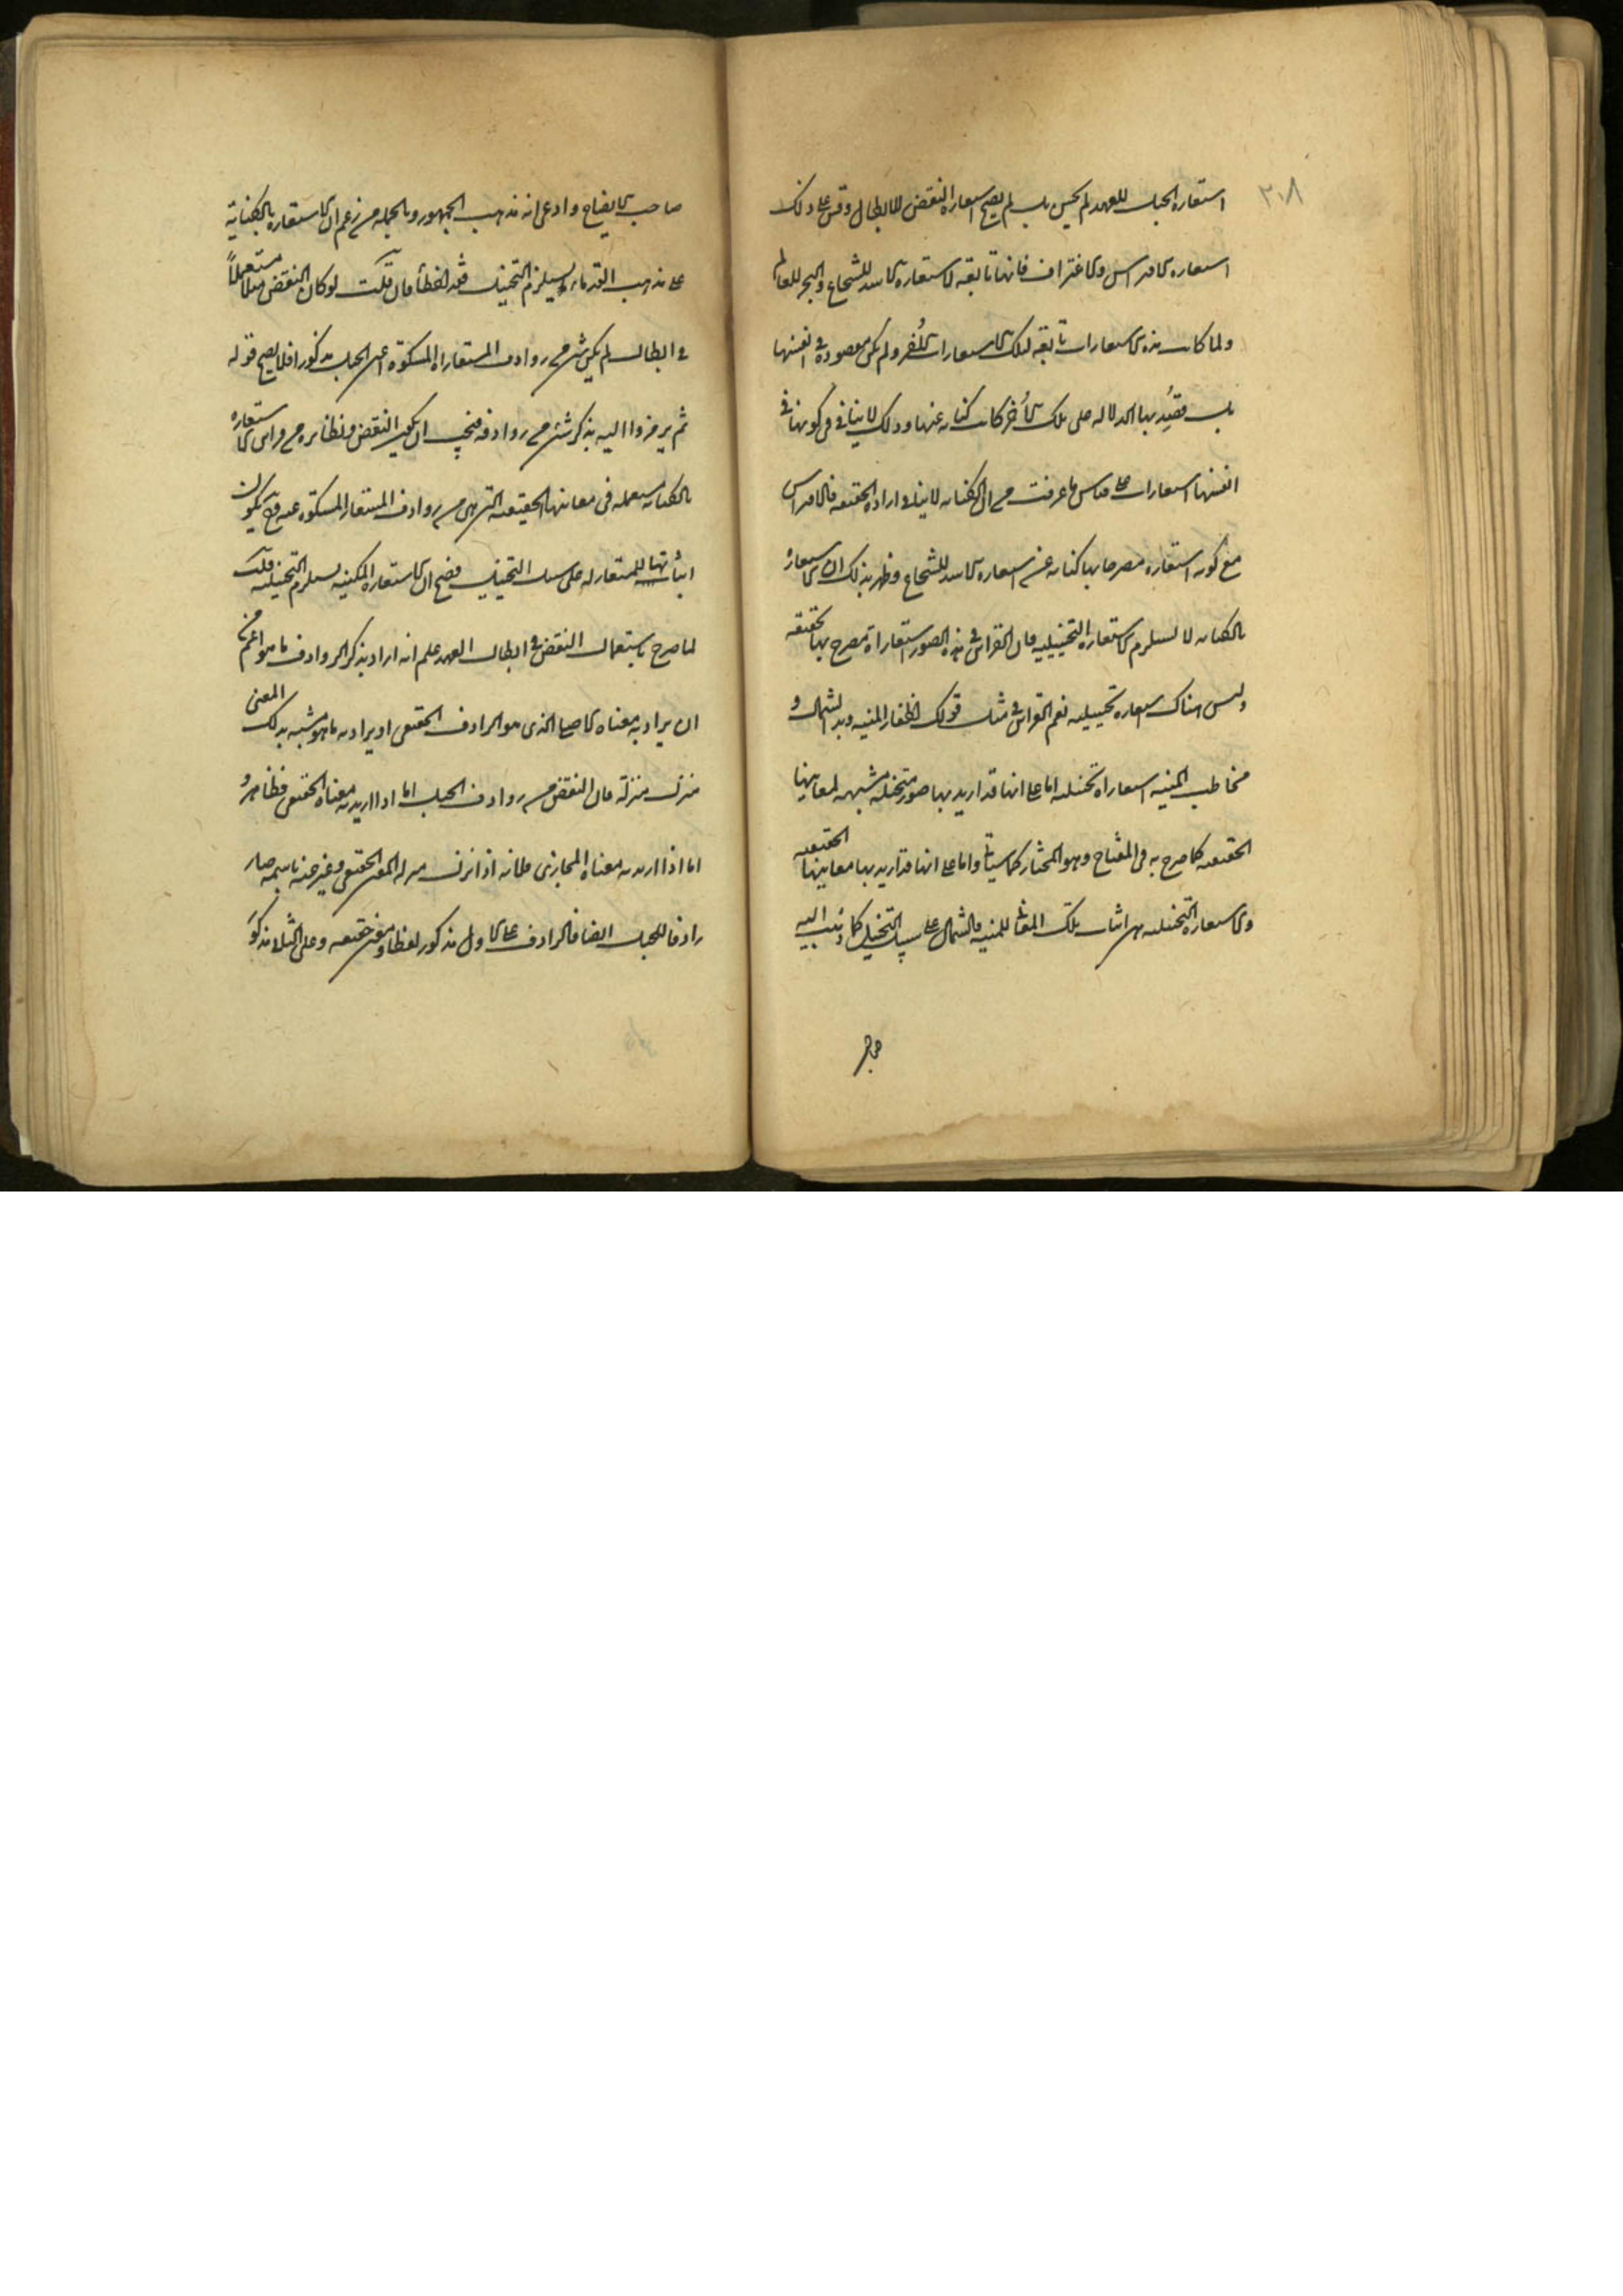 ٢٠٨
استعاره الحبل للعهد لم يحسن بل لم يصح استعاره النقض للابطال وقس على ذلك
استعاره الافتراس والاغتراف فانها تابعة لاستعارة الاسد للشجاع والبحر للعالم
ولما كانت هذه الاستعارات تابعة لتلك الاستعارات الأخر ولم تكن مقصودة في انفسها
بل قصد بها الدلاله على تلك الأخر كانت كنايه عنها وذلك لا ينافي في كونها في
انفسها استعارات على قياس ما عرفت من ان الكنايه لا ينافي اراده الحقيقه فالافتراس
مع كونه استعاره مصرحا بها كنايه عن استعاره الاسد للشجاع وظهر بذلك ان الاستعارة
بالكنايه لا تستلزم الاستعاره التخييليه فان القرائن في هذه الصور استعارات مصرح بها تحقيقيه
وليس هناك استعاره تخييليه نعم القرائن في مثل قولك اظفار المنيه ويد الشمال و
مخاطب المنيه استعارات تخييليه اما على انها قد اريد بها صور متخيله مشبهه لمعانيها
الحقيقيه كما صرح به في المفتاح وهو المختار كما سيأتي واما على انها قد اريد بها معانيها الحقيقيه
والاستعاره التخييليه هي اثبات تلك المعاني للمنيه والشمال على سبيل التخييل كما ذهب اليه
صاحب
صاحب الايضاح وادعى انه مذهب الجمهور وبالجمله من زعم ان الاستعاره بالكناية
على مذهب القدماء يستلزم التخييل فقد اخطأ فان قلت لو كان النقض مثلا مستعملاً
في ابطال لم يكن شئ من روادف المستعار المسكوت اعني الحبل مذكورا فلا يصح قوله
ثم يرمزوا اليه بذكر شئ من روادفه فيجب ان يكون النقض ونظائره من قرائن الاستعاره
بالكنايه مستعمله في معانيها الحقيقيه التي هي من روادف المستعار المسكوت عنه وح يكون
اثباتها للمستعار له على سبيل التخييل فصح ان الاستعاره المكنيه يستلزم التخييليه قلت
لما صرح باستعمال النقض في ابطال العهد علم انه اراد بذكر الروادف ما هو اعم من
ان يراد به معناه الاصلي الذي هو الرادف الحقيقي او يراد به ما هو مشبه بذلك المعنى
منزل منزلته فان النقض من روادف الحبل اما اذا اريد به معناه الحقيقي فظاهر و
اما اذا اريد به معناه المجازي فلانه اذا نزل منزله المعنى الحقيقي وعبر عنه باسمه صار
رادفا للحبل ايضا فالرادف على الاول مذكور لفظا ومعنى حقيقه وعلى الثاني مذكور